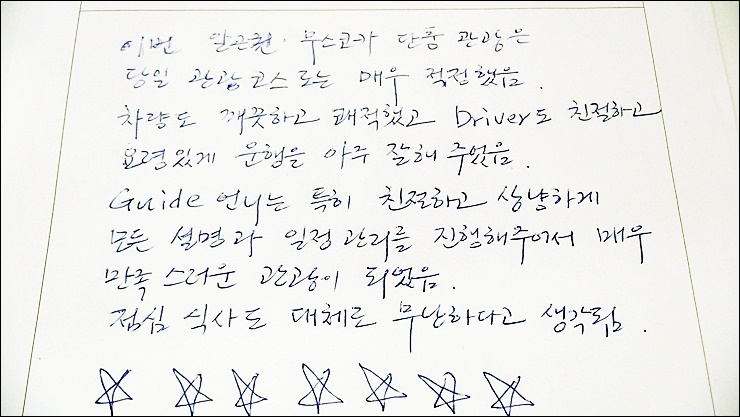 이번 알곤퀸·무스코카 단풍 관광은
당일 관광코스로는 매우 적절했음.
차량도 깨끗하고 쾌적했고 Driver도 친절하고
요령있게 운행을 아주 잘해 주었음.
Guide 언니는 특히 친절하고 상냥하게
모든 설명과 일정관리를 진행해주어서 매우
만족스러운 관광이 되었음.
점심 식사도 대체로 무난하다고 생각됨.